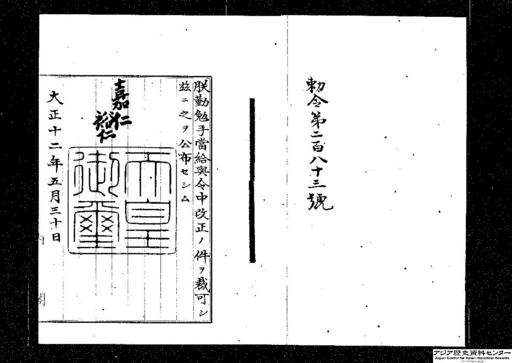 勅令第二百八十三號
朕勤勉手當給與令中改正ノ件ヲ裁可シ
茲ニ之ヲ公布セシム
嘉仁
裕仁
天皇御璽
大正十二年五月三十日
アジア歴史資料センター
Japan Center for Asian Historical Records